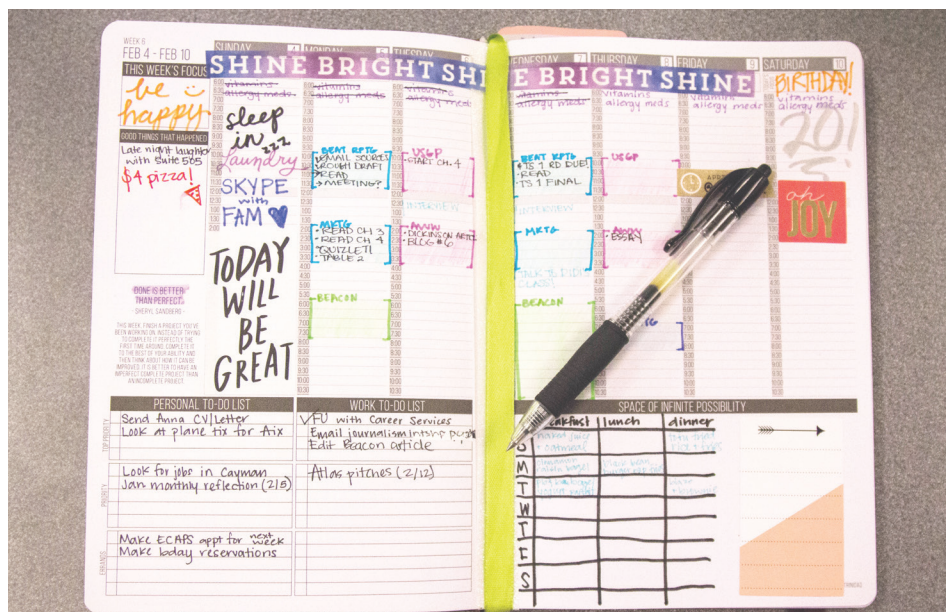 WEEK 6
FEB 4 - FEB 10
THIS WEEK'S FOCUS
be
happy
GOOD THINGS THAT HAPPENED
Late night laughter
with suite 505
$4 pizza!
DONE IS BETTER
THAN PERFECT.
- SHERYL SANDBERG -
THIS WEEK, FINISH A PROJECT YOU'VE
BEEN WORKING ON. INSTEAD OF TRYING
TO COMPLETE IT PERFECTLY THE
FIRST TIME AROUND, COMPLETE IT
TO THE BEST OF YOUR ABILITY AND
THEN THINK ABOUT HOW IT CAN BE
IMPROVED. IT IS BETTER TO HAVE AN
IMPERFECT COMPLETE PROJECT THAN
AN INCOMPLETE PROJECT.
SUNDAY 4
MONDAY 5
TUESDAY
SHINE BRIGHT SHI
vitamins
allergy meds
sleep
in zzz
Laundry
SKYPE
with
FAM
TODAY
WILL
BE
GREAT
vitamins
allergy meds
BEAT RPTG
EMAIL SOURCES
ROUGH DRAFT
READ
MEETING?
MKTG
READ CH 3
READ CH 4
QUIZLET!
TABLE 2
BEACON
vitamins
allergy meds
USGP
START CH. 4
INTERVIEW
BLOG #6
WEDNESDAY 7
THURSDAY 8
FRIDAY 9
SATURDAY 10
E BRIGHT SHINE
allergy meds
BEAT RPTG
TS 1 RD DUE!
READ
TS 1 FINAL
INTERVIEW
MKTG
BEACON
vitamins
allergy meds
USGP
ESSAY
vitamins
allergy meds
BIRTHDAY!
vitamins
allergy meds
20!
oh
JOY
PERSONAL TO-DO LIST
TOP PRIORITY
Send Anna CV/Letter
Look at plane tix for Aix
PRIORITY
Look for jobs in Cayman
Jan monthly reflection (2/5)
ERRANDS
Make ECAPS appt for next
week
Make bday reservations
WORK TO-DO LIST
FU with Career Services
Email journalism
Edit Beacon article
Atlas pitches (2/12)
SPACE OF INFINITE POSSIBILITY
lunch
dinner
naked juice
+ oatmeal
S
M
T
W
T
F
S